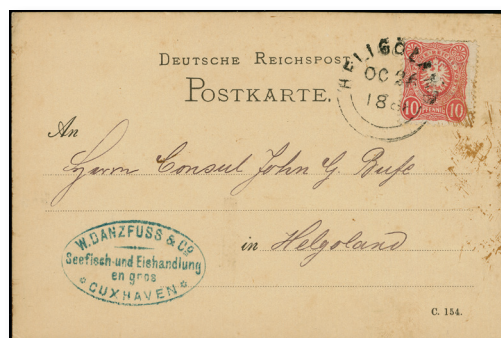 DEUTSCHE REICHSPOST
POSTKARTE.
HELIGOLAND
OC 26
18
10 PFENNIG 10
An
Herrn Consul John G.
in Helgoland
W. DANZFUSS & Co
Seefisch-und Eishandlung
en gros
* CUXHAVEN *
C. 154.